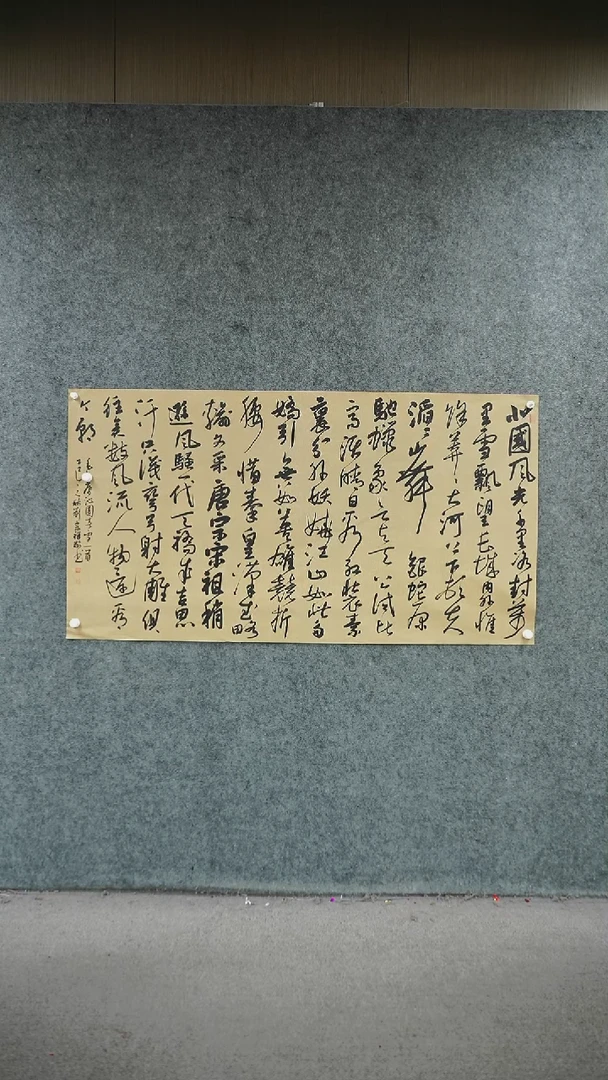 北國風光千里冰封萬
里雪飄望長城內外惟
餘莽々大河上下頓失
滔々山舞銀蛇原
馳蠟象欲與天公試比
高須晴日看紅裝素
裹分外妖嬈江山如此多
嬌引無數英雄競折
腰惜秦皇漢武略
輸文采唐宗宋祖稍
遜風騷一代天驕成吉思
汗只識彎弓射大雕俱
往矣數風流人物還看
今朝